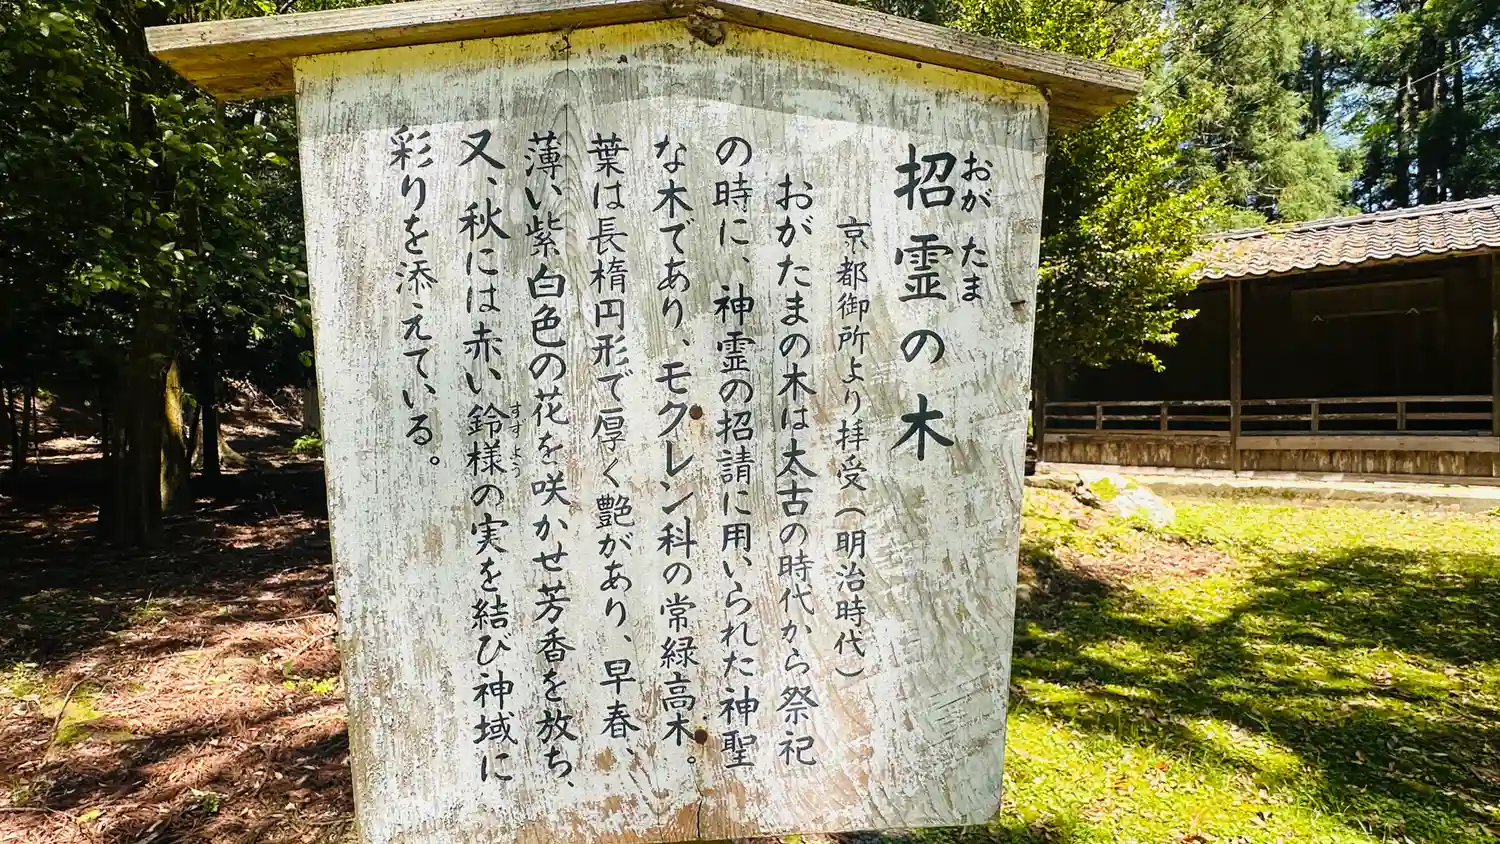 招霊の木
おが たま
京都御所より拝受(明治時代)
おがたまの木は太古の時代から祭祀
の時に、神霊の招請に用いられた神聖
な木であり、モクレン科の常緑高木。
葉は長楕円形で厚く艶があり、早春、
薄い紫白色の花を咲かせ芳香を放ち、
又、秋には赤い鈴様の実を結び神域に
すずよう
彩りを添えている。